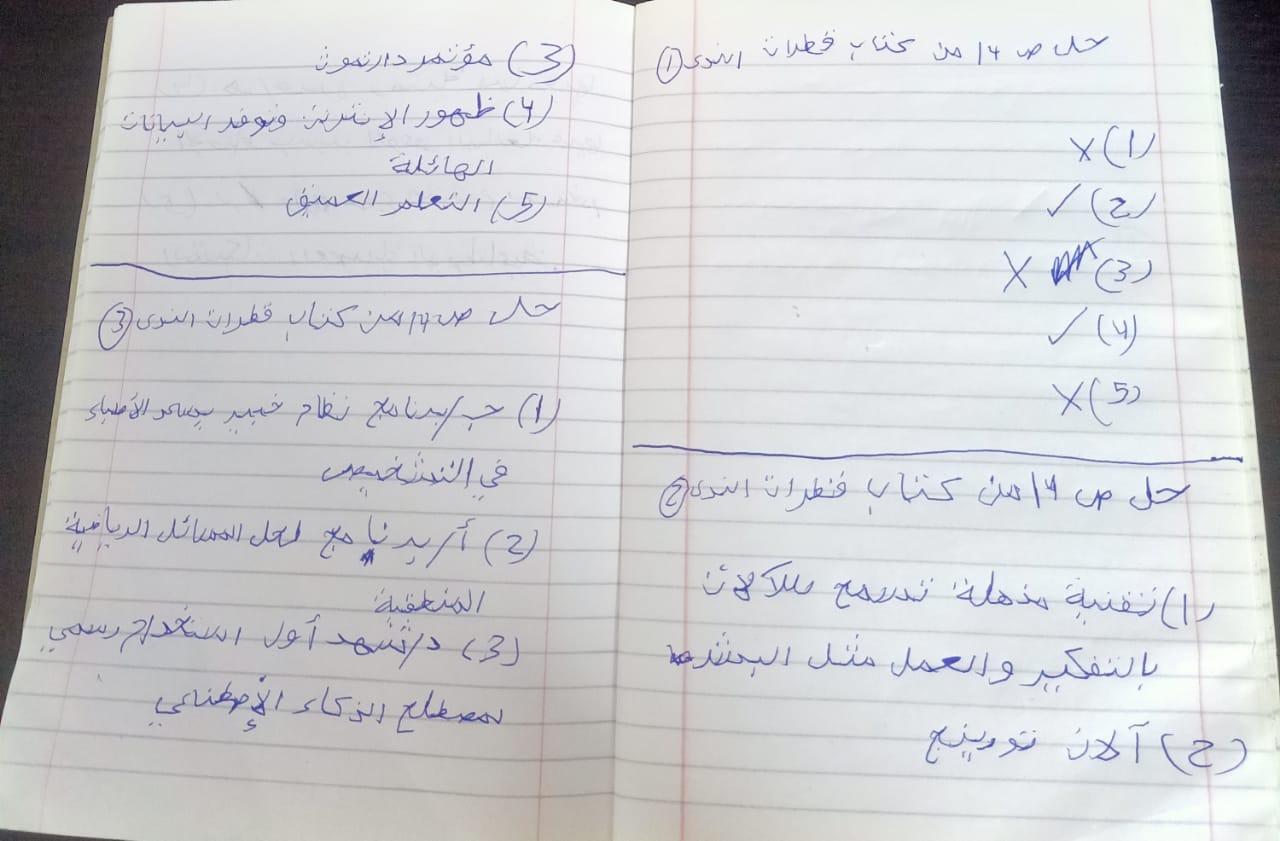 حل ص 14 من كتاب قطرات الندى (1)
(1) X
(2) ✓
(3) X
(4) ✓
(5) X
حل ص 14 من كتاب قطرات الندى (2)
(1) تقنية مذهلة تسمح للآلات
بالتفكير والعمل مثل البشر
(2) آلان تورينج
(3) مؤتمر دارتموث
(4) ظهور الإنترنت وتوفر البيانات
الهائلة
(5) التعلم العميق
حل ص 14 من كتاب قطرات الندى (3)
(1) ب/برنامج نظام خبير يساعد الأطباء
في التشخيص
(2) أ/برنامج لحل المسائل الرياضية
المنطقية
(3) د/شهد أول استخدام رسمي
لمصطلح الذكاء الإصطناعي